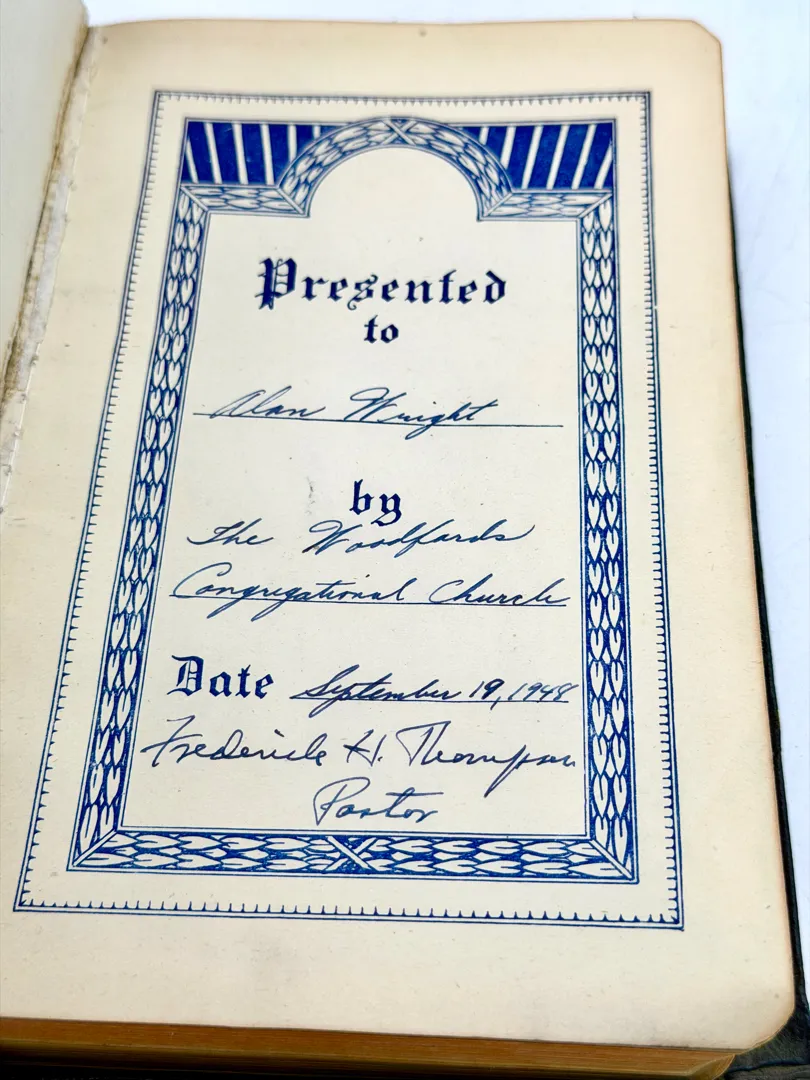 Presented
to
Alan Wright
by
The Woodfards
Congregational Church
Date September 19, 1948
Frederick H. Thompson
Pastor